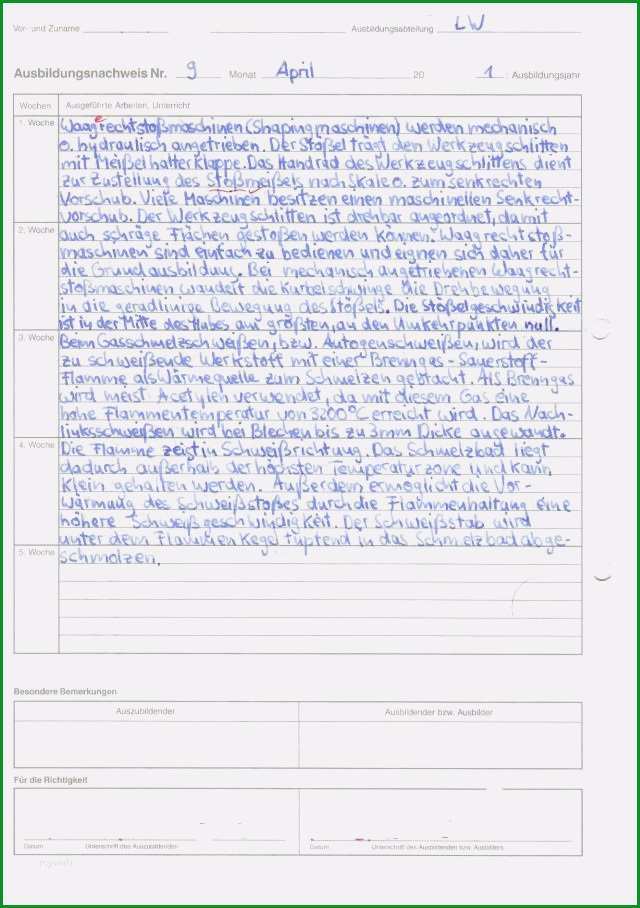 Vor- und Zuname
Ausbildungsabteilung LW
Ausbildungsnachweis Nr. 9 Monat April 20 1 Ausbildungsjahr
Wochen Ausgeführte Arbeiten, Unterricht
1. Woche Waagerechtstoßmaschinen (Shapingmaschinen) werden mechanisch
o. hydraulisch angetrieben. Der Stößel trägt den Werkzeugschlitten
mit Meißelhalterklappe. Das Handrad des Werkzeugschlittens dient
zur Zustellung des Stoßmeißels nach Skale o. zum senkrechten
Vorschub. Viele Maschinen besitzen einen maschinellen Senkrecht-
vorschub. Der Werkzeugschlitten ist drehbar angeordnet, damit
2. Woche auch schräge Flächen gestoßen werden können. Waagrechtstoß-
maschinen sind einfach zu bedienen und eignen sich daher für
die Grundausbildung. Bei mechanisch angetriebenen Waagrecht-
stoßmaschinen wandelt die Kurbelschwinge die Drehbewegung
in die geradlinige Bewegung des Stößels. Die Stößelgeschwindigkeit
ist in der Mitte des Hubes am größten, an den Umkehrpunkten null.
3. Woche Beim Gasschmelzschweißen, bzw. Autogenschweißen, wird der
zu schweißende Werkstoff mit einer Brenngas-Sauerstoff-
Flamme als Wärmequelle zum Schmelzen gebracht. Als Brenngas
wird meist Acetylen verwendet, da mit diesem Gas eine
hohe Flammentemperatur von 3200°C erreicht wird. Das Nach-
linksschweißen wird bei Blechen bis zu 3mm Dicke angewandt.
4. Woche Die Flamme zeigt in Schweißrichtung. Das Schmelzbad liegt
dadurch außerhalb der höchsten Temperaturzone und kann
klein gehalten werden. Außerdem ermöglicht die Vor-
wärmung des Schweißstoßes durch die Flammenhaltung eine
höhere Schweißgeschwindigkeit. Der Schweißstab wird
unter dem Flammenkegel tupfend in das Schmelzbad abge-
5. Woche schmolzen.
Besondere Bemerkungen
Auszubildender Ausbildender bzw. Ausbilder
Für die Richtigkeit
Datum Unterschrift des Auszubildenden Datum Unterschrift des Ausbildenden bzw. Ausbilders